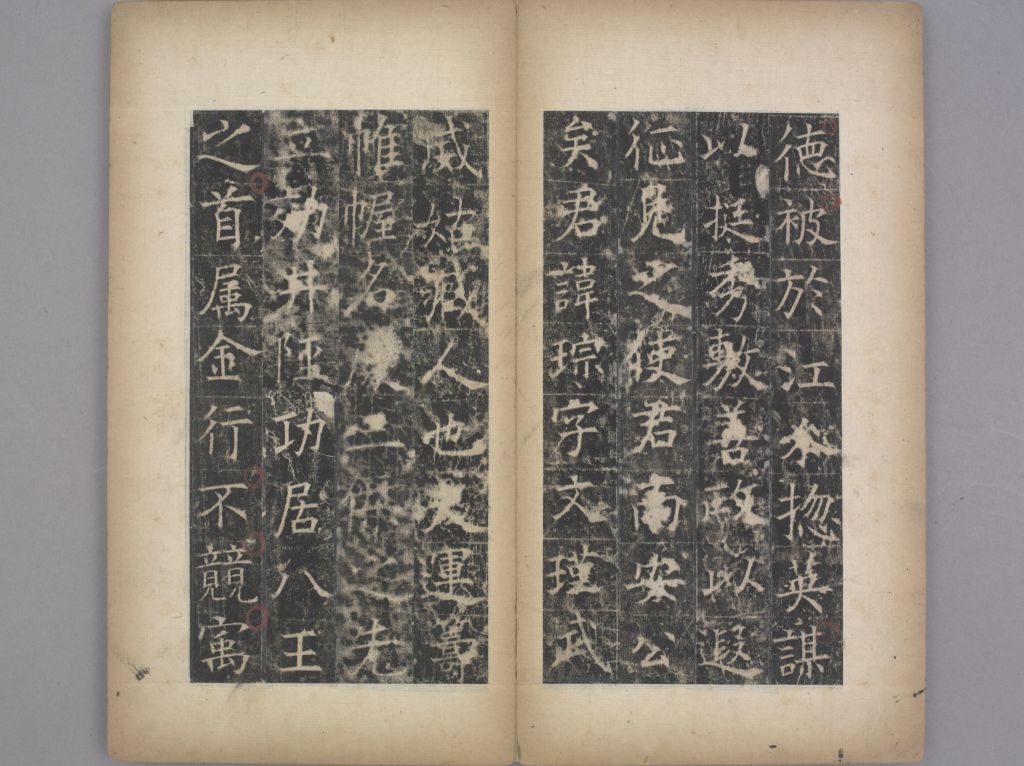 徳被於江水惣英謀
以挺秀敷善政以遐
征見之使君南安公
矣君諱琮字文瑾武
威姑臧人也運籌
帷幄名二傑之先
立効井陘功居八王
之首属金行不競寓